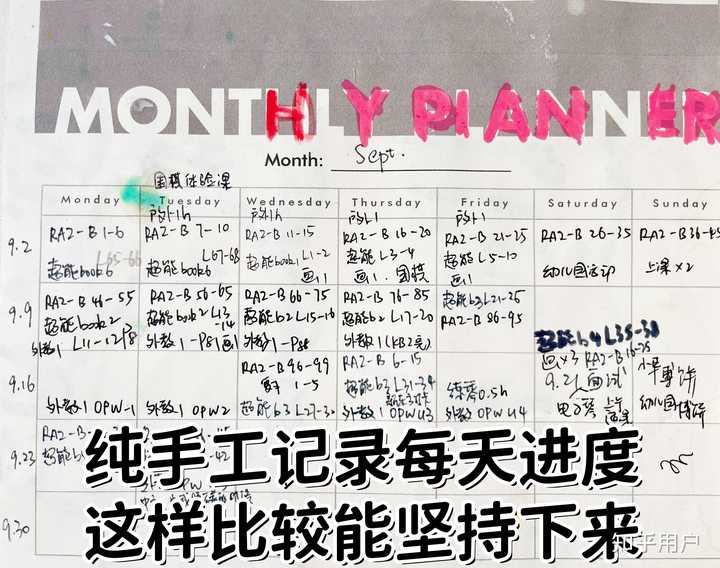 MONTHLY PLANNER
Month: Sept.
国模体验课
Monday Tuesday Wednesday Thursday Friday Saturday Sunday
户外1h 户外1h 户外1 户外1
9.2 RA2-B 1-6 RA2-B 7-10 RA2-B 11-15 RA2-B 16-20 RA2-B 21-25 RA2-B 26-35 RA2-B 36-45
超能book6 L65-66 超能book6 L67-68 超能book1 L1-2 超能 L3-4 超能 L5-10 幼儿园运动 上课×2
画1 画1. 国模 画1
9.9 RA2-B 46-55 RA2-B 56-65 RA2-B 66-75 RA2-B 76-85 超能b3 L21-26
超能book2 L11-12 超能book2 L13-14 超能b2 L15-16 超能b2 L17-20 RA2-B 86-95 超能b4 L35-38
外教1 P8 外教1-P8 画1 外教1-P8 外教1 画×3 RA2-B 16-25
9.16 RA2-B 96-99 RA2-B 6-15 9.21 面试
1-5 超能b3 L31-34 练琴0.5h 电子琴
外教1 OPW-1 外教1 OPW2 超能b3 L27-30 外教1 OPW3 外教1 OPW4 幼儿园
9.23
9.30
纯手工记录每天进度
这样比较能坚持下来
知乎用户